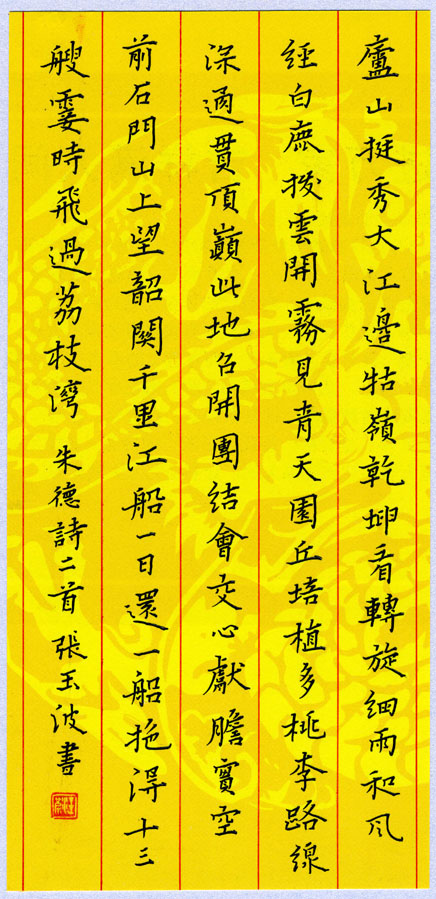 廬山挺秀大江邊牯嶺乾坤看轉旋細雨和风
經白鹿撥雲開霧見青天園丘培植多桃李路線
深通貫頂巔此地召開團結會交心獻膽實空
前石門山上望韶關千里江船一日還一船拖得十三
艘霎時飛過荔枝灣 朱德詩二首 張玉波書